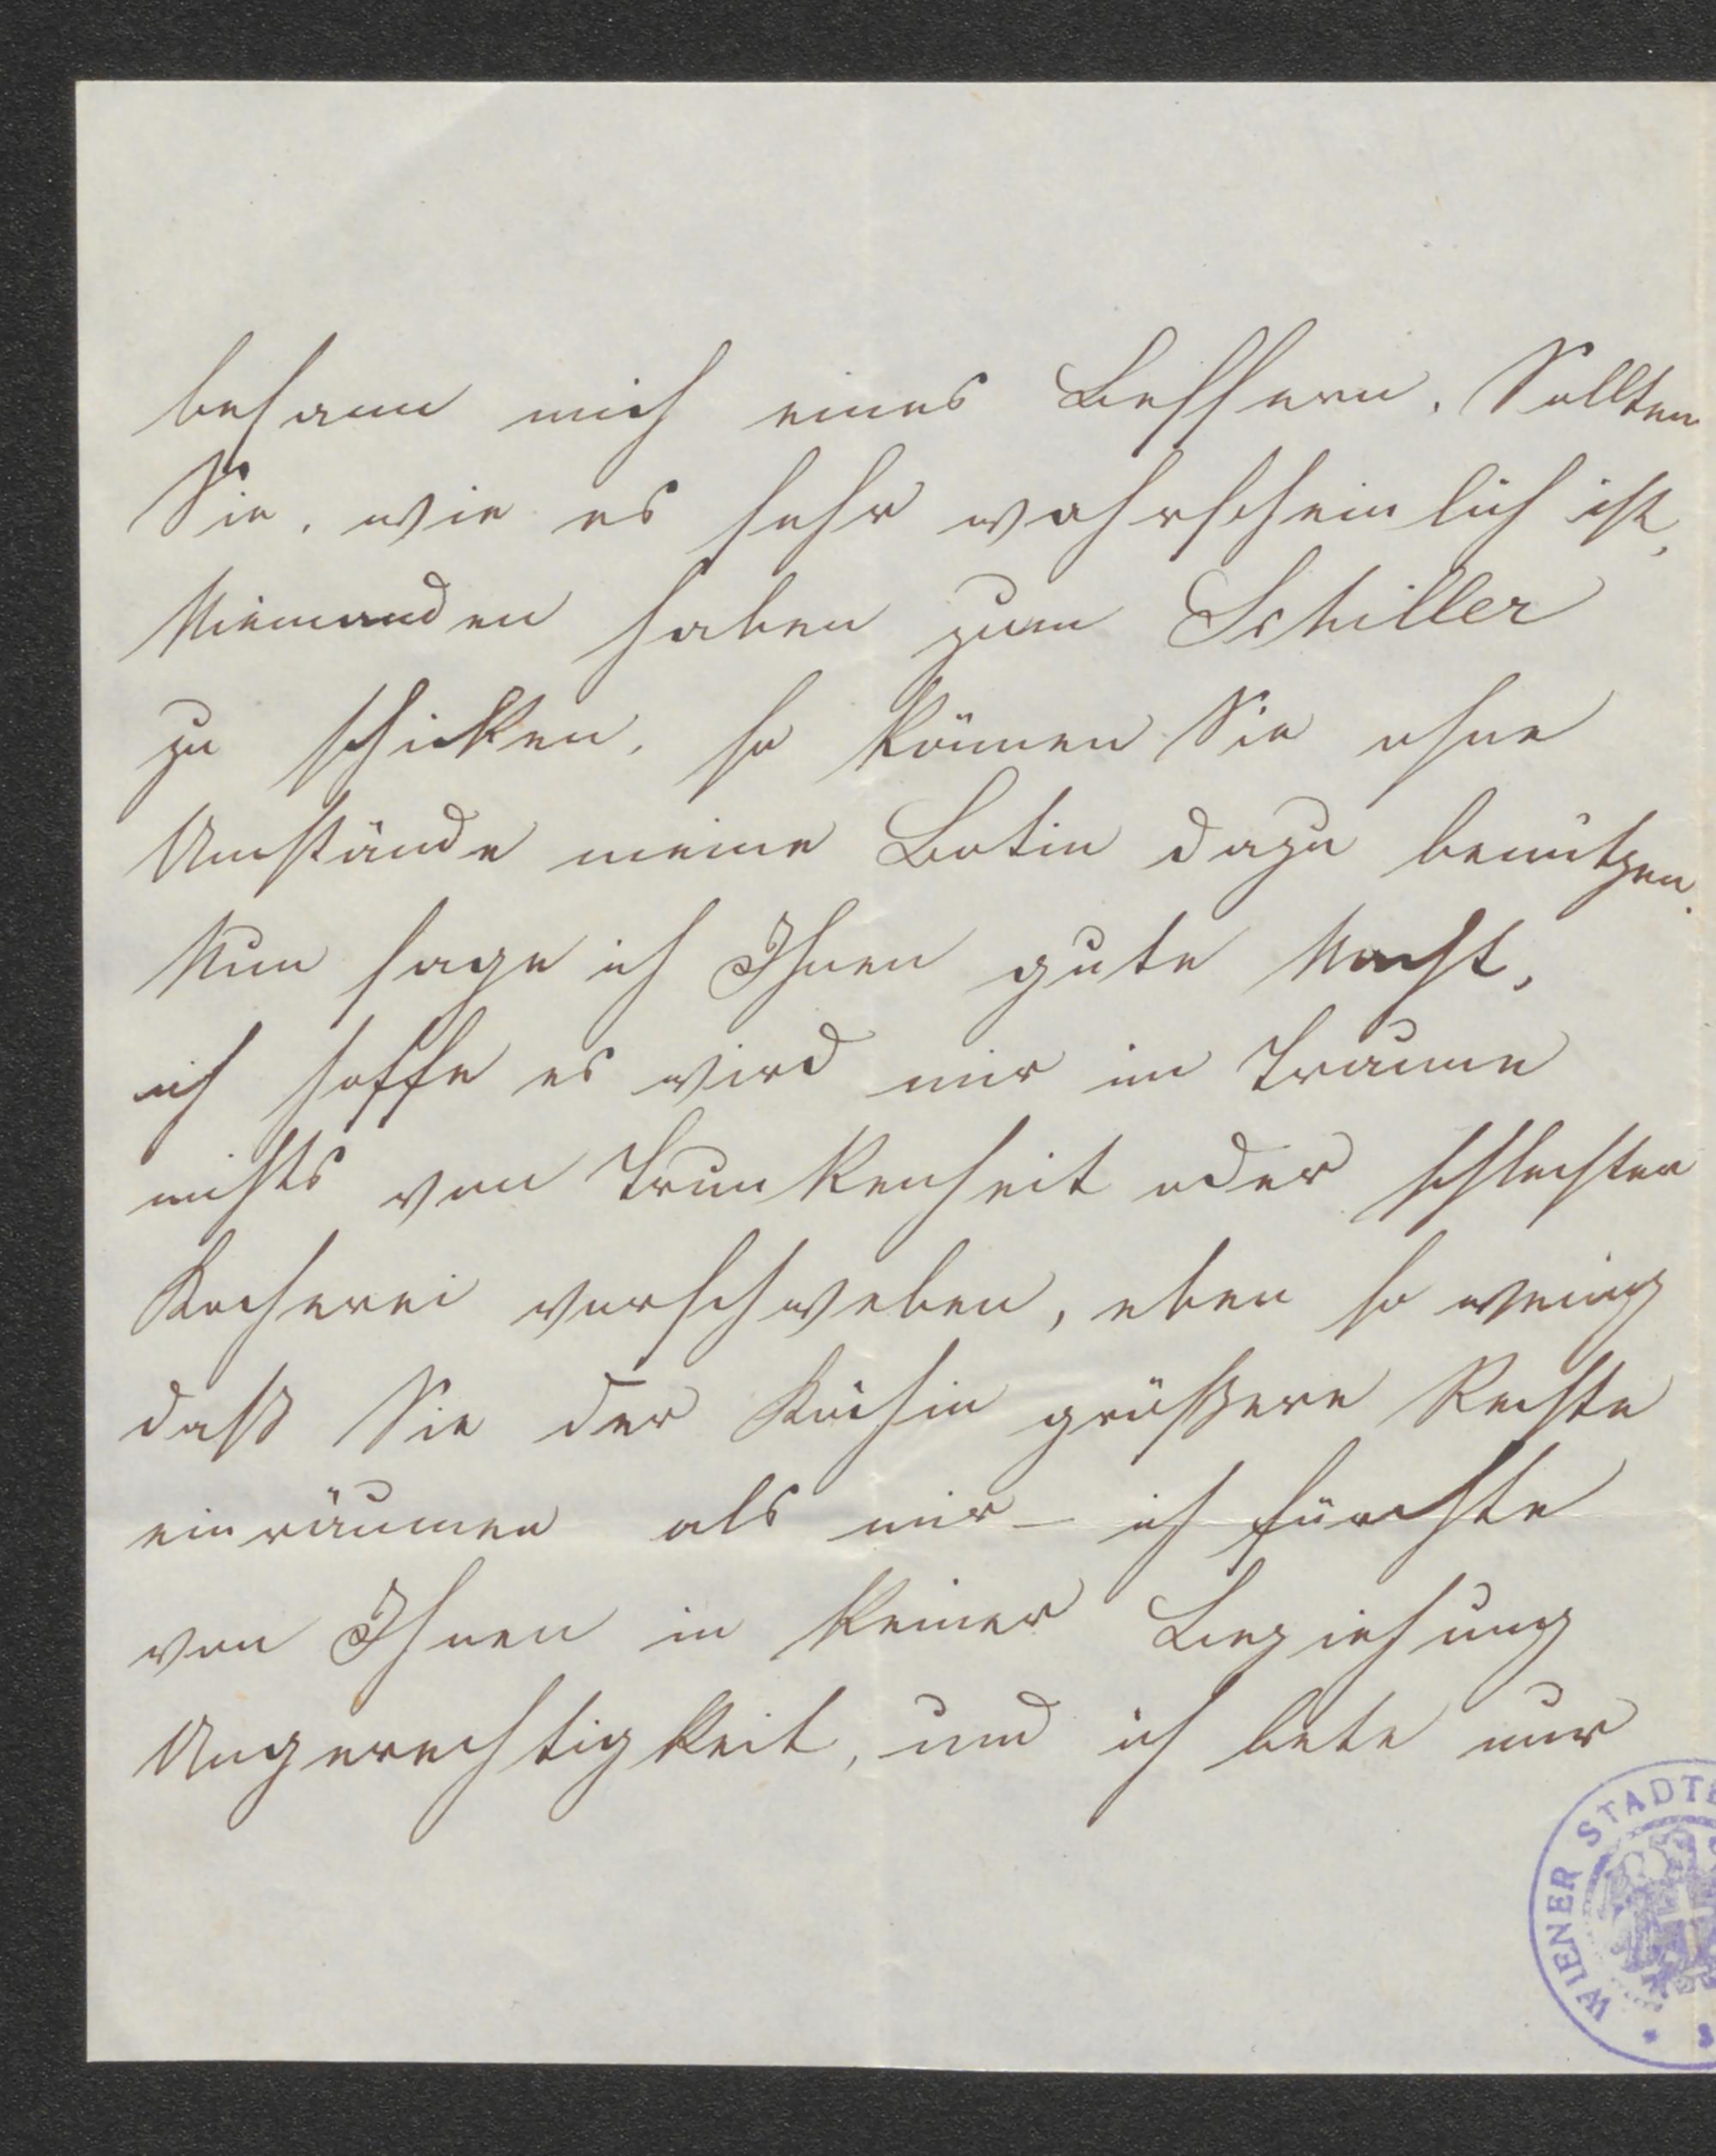 besann mich eines Bessern. Sollten
Sie, wie es sehr wahrscheinlich ist,
Niemanden haben zum Schiller
zu schicken, so können Sie ohne
Umstände meine Botin dazu benützen.
Nun sage ich Ihnen gute Nacht,
ich hoffe es wird mir im Traume
nichts von Trunkenheit oder schlechter
Kocherei vorschweben, eben so wenig
daß Sie der Köchin größere Rechte
einräumen als mir – ich fürchte
von Ihnen in keiner Beziehung
Ungerechtigkeit, und ich bete nur
WIENER STADT